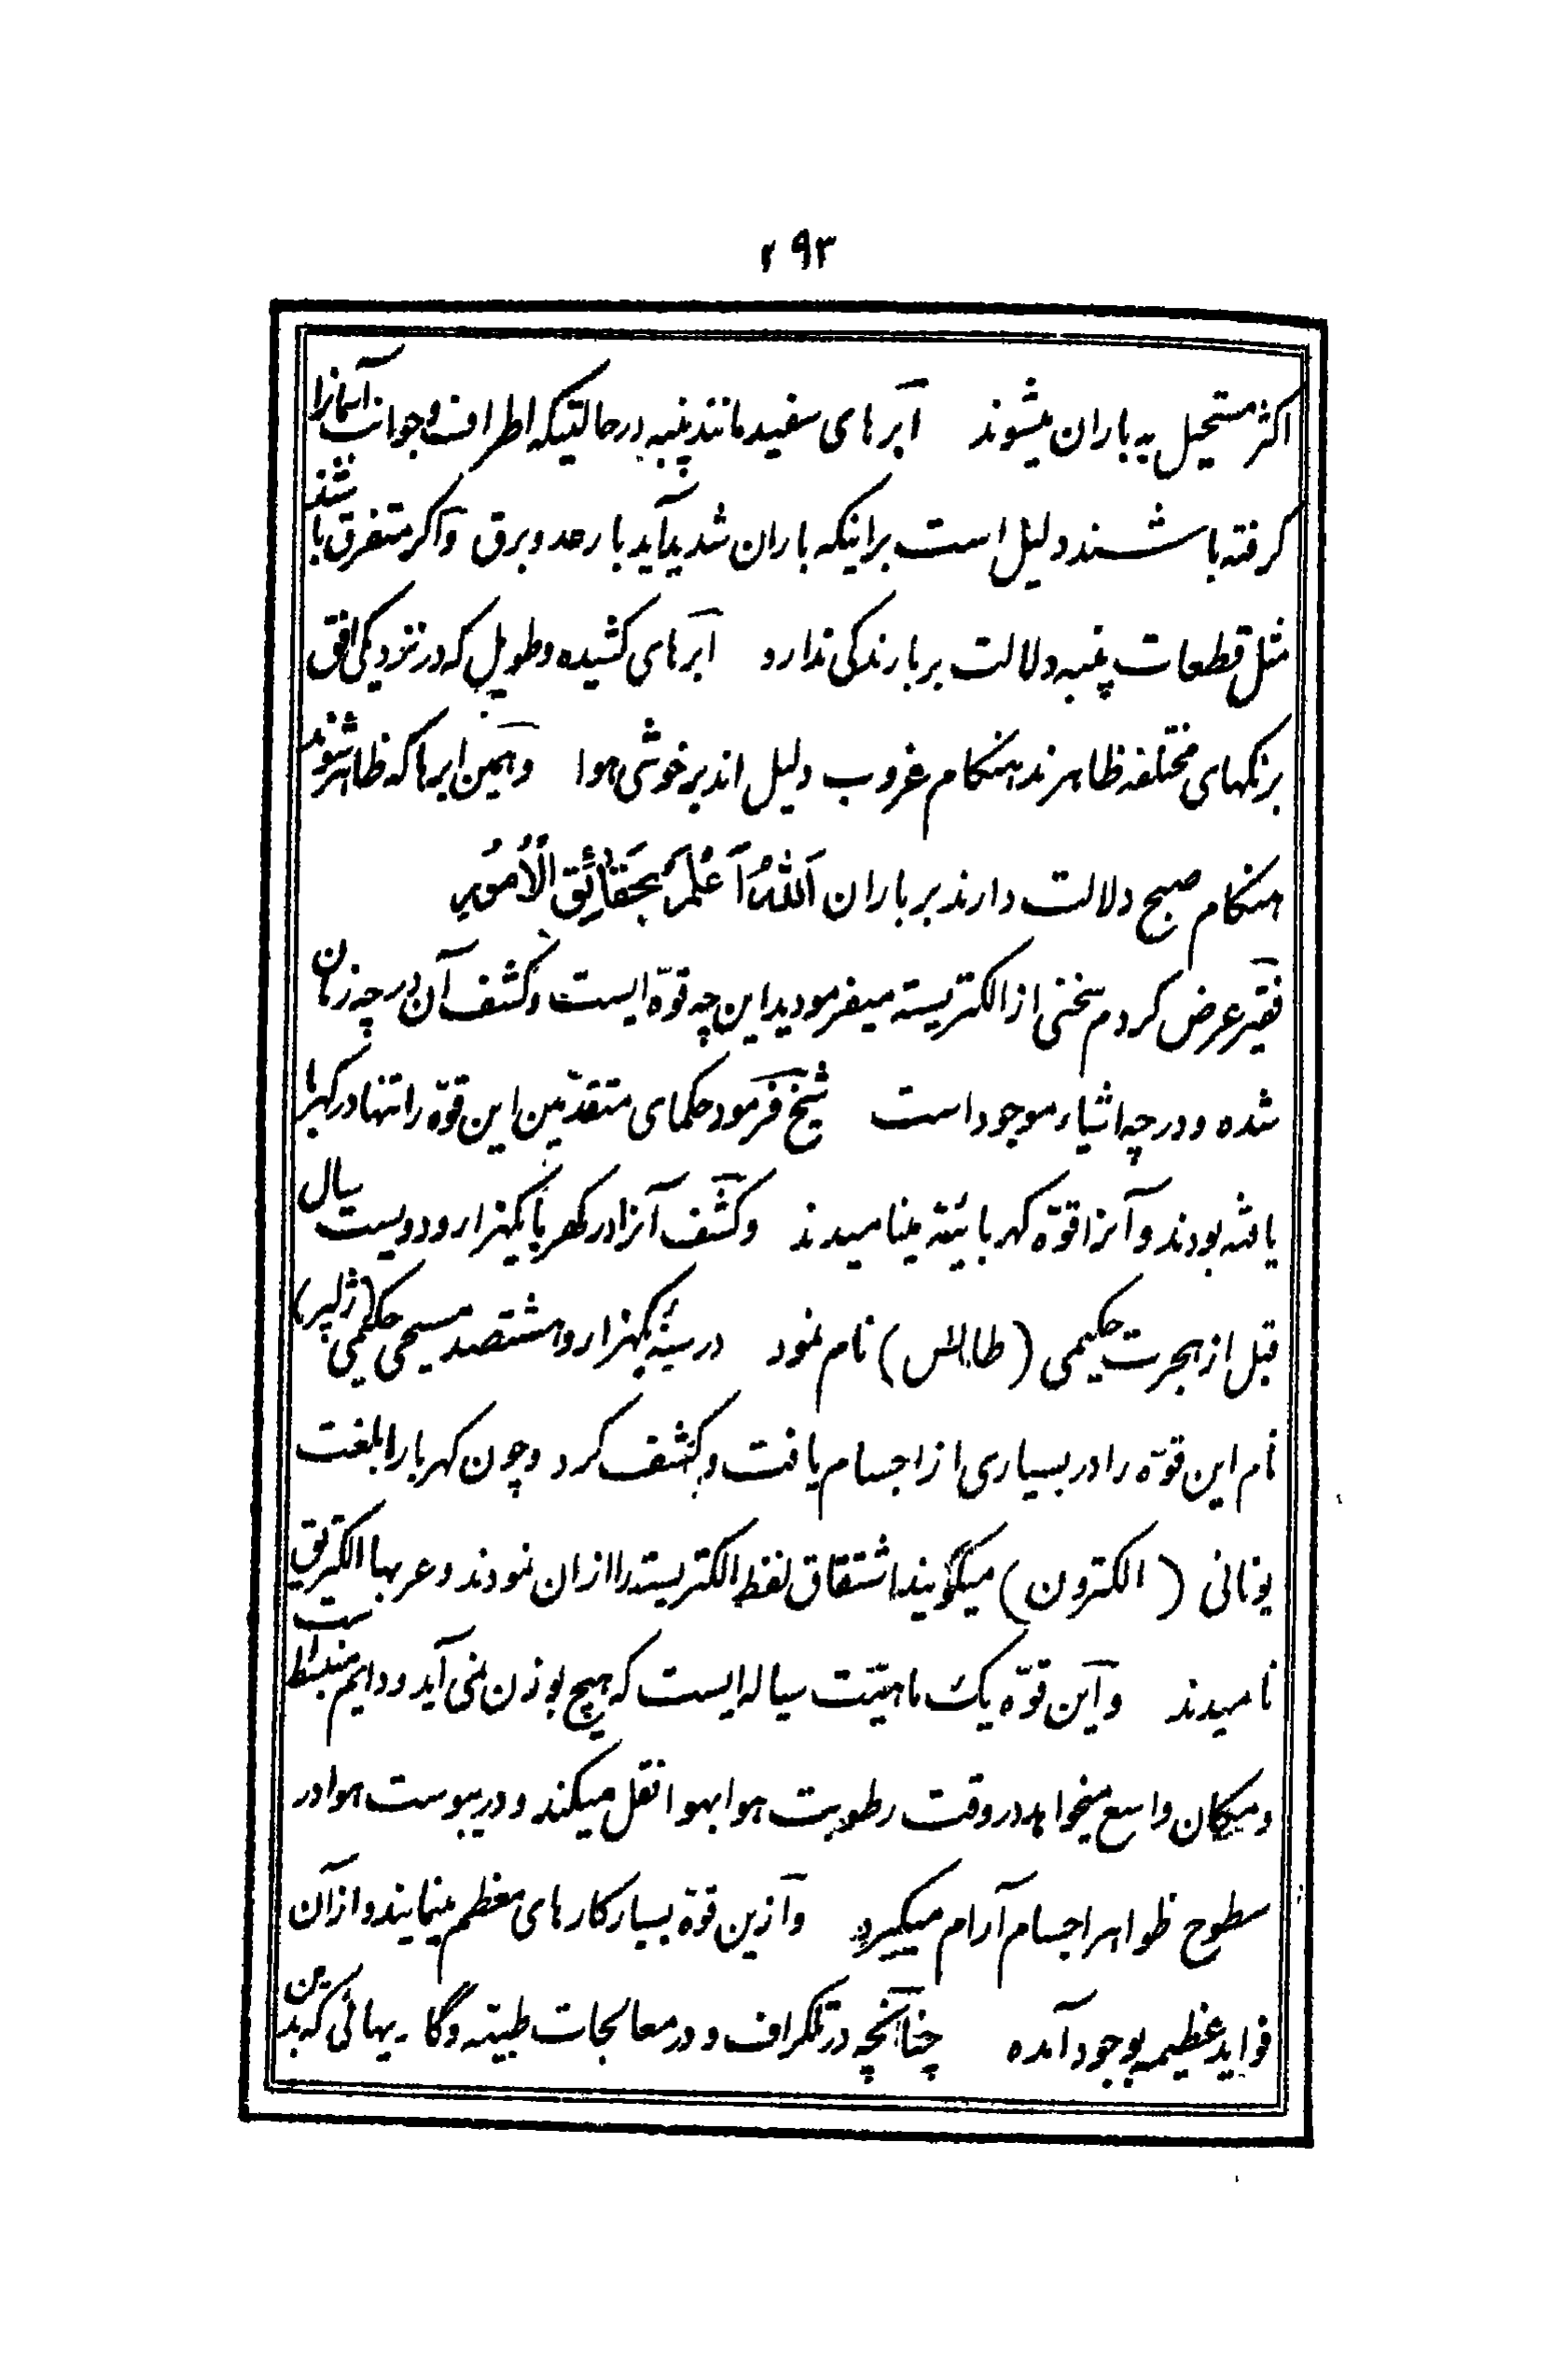 ۲۹۳
اکثر مستحیل به باران میشوند ابرهای سفید مانند پنبه در حالتیکه اطراف و جوانب آسمانرا
کرفته باشند دلیل است براینکه باران شدید آید با رعد و برق و اکر متفرق باشند
مثل قطعات پنبه دلالت بر بارندکی ندارد ابرهای کشیده و طویل که در نزدیکی افق
برنکهای مختلفه ظاهرند هنکام غروب دلیل اند بر خوشی هوا و همین ابرها که ظاهر شوند
هنکام صبح دلالت دارند بر باران اَللّٰهُ اَعْلَمُ بِحَقَائِقِ الْاُمُورِ
فقیر عرض کردم سخنی از الکتریسته میفرمودید این چه قوّه ایست و کشف آن در چه زمان
شده و در چه اشیاء موجود است شیخ فرمود حکمای متقدّمین این قوّه را تنها در کهربا
یافته بودند و آنرا قوّه کهربائیّه مینامیدند و کشف آنرا در کهربا یکهزار و دویست سال
قبل از هجرت حکیمی (طالس) نام نمود در سنهٔ یکهزار و هشتصد مسیحی حکیمی (ژلبر)
نام این قوّه را در بسیاری از اجسام یافت و کشف کرد و چون کهربا را بلغت
یونانی (الکترون) میگویند اشتقاق لفظ الکتریسته را ازان نمودند و عربها الکتریق
نامیدند و این قوّه یک ماهیّت سیاله ایست که هیچ بوزن نمی آید و دایم منبسط است
و میکان واسع میخواهد در وقت رطوبت هوا بهوا نقل میکند و در یبوست هوا در
سطوح ظواهر اجسام آرام میکیرد و ازین قوّه بسیار کارهای معظم مینمایند و ازآن
فواید عظیمه بوجود آمده چنانچه در تلکراف و در معالجات طبیّه و گاریهائی که بدین